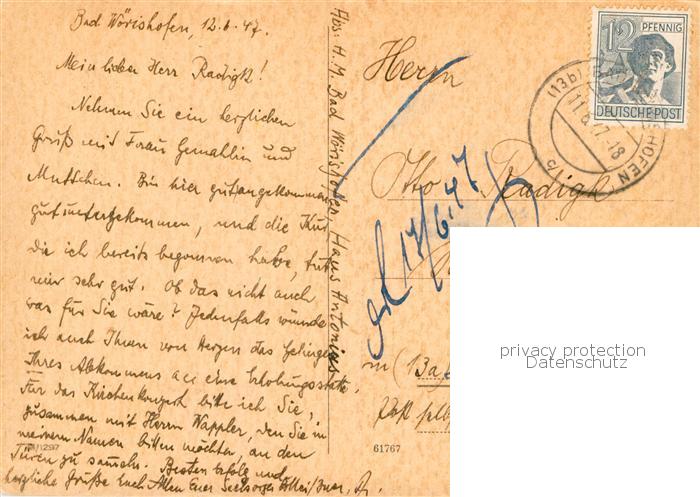 Bad Wörishofen, 12.6.47.
Mein lieber Herr Radigk!
Nehmen Sie ein herzlichen
Gruß mit Frau Gemahlin und
Muttchen. Bin hier gut angekommen,
gut untergekommen, und die Kur,
die ich bereits begonnen habe, tut
mir sehr gut. Ob das nicht auch
was für Sie wäre? Jedenfalls wünsche
ich auch Ihnen von Herzen das Gelingen
Ihres Abkommens an eine Erholungsstätte.
Für das Kirchenkonzert bitte ich Sie,
zusammen mit Herrn Wappler, den Sie in
meinem Namen bitten möchten, an den
Türen zu sammeln. Besten Erfolg und
herzliche Grüße Euch Allen Euer Seelsorger
Abs: H. M. Bad Wörishofen, Haus Antonius
Herrn
Otto Radigk
17/6.47
(13a)
Post
61767
12 PFENNIG
DEUTSCHE POST
(13b) BAD WÖRISHOFEN
11.6.47-18
c
privacy protection
Datenschutz